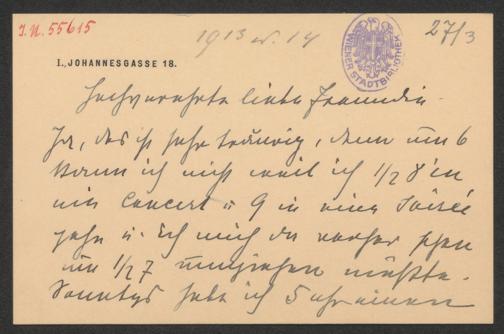 I.N. 55615
1913 od. 14
27/3
WIENER STADTBIBLIOTHEK
I., JOHANNESGASSE 18.
Hochverehrte liebe Freundin.
Ja, das ist sehr traurig, denn um 6
kann ich nicht weil ich 1/2 8 in
ein Concert u 9 in eine Soirée
gehe u. ich mich da vorher schon
um 1/2 7 umziehen müßte.
Sonntags habe ich 5 Uhr einen